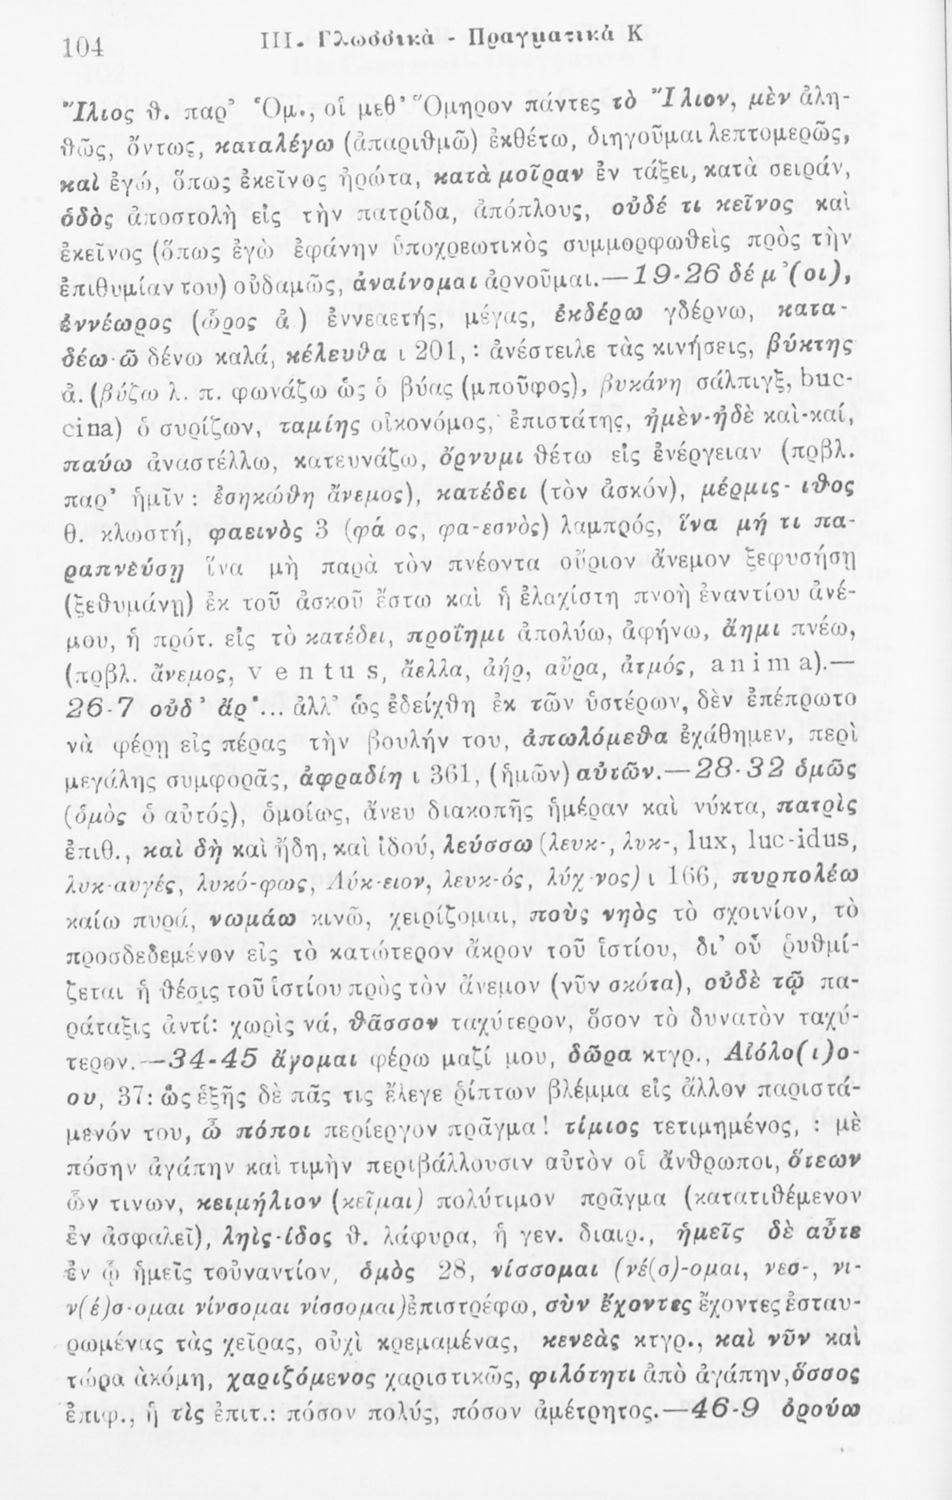 104
III. Γλωσσικὰ - Πραγματικὰ Κ
Ἴλιος ϑ. παρ’ Ὁμ., οἱ μεθ’ Ὅμηρον πάντες τὸ Ἴλιον, μὲν ἀλη-
ϑῶς, ὄντως, καταλέγω (ἀπαριϑμῶ) ἐκθέτω, διηγοῦμαι λεπτομερῶς,
καὶ ἐγώ, ὅπως ἐκεῖνος ἠρώτα, κατὰ μοῖραν ἐν τάξει, κατὰ σειράν,
ὁδὸς ἀποστολὴ εἰς τὴν πατρίδα, ἀπόπλους, οὐδέ τι κεῖνος καὶ
ἐκεῖνος (ὅπως ἐγὼ ἐφάνην ὑποχρεωτικὸς συμμορφωϑεὶς πρὸς τὴν
ἐπιθυμίαν του) οὐδαμῶς, ἀναίνομαι ἀρνοῦμαι.—19-26 δέ μ’(οι),
ἐννέωρος (ὧρος ἀ ) ἐννεαετής, μέγας, ἐκδέρω γδέρνω, κατα-
δέω-ῶ δένω καλά, κέλευϑα ι 201, : ἀνέστειλε τὰς κινήσεις, βύκτης
ἀ. (βύζω λ. π. φωνάζω ὡς ὁ βύας (μποῦφος), βυκάνη σάλπιγξ, buc-
cina) ὁ συρίζων, ταμίης οἰκονόμος, ἐπιστάτης, ἠμὲν-ἠδὲ καὶ-καί,
παύω ἀναστέλλω, κατευνάζω, ὄρνυμι ϑέτω εἰς ἐνέργειαν (πρβλ.
παρ’ ἡμῖν : ἐσηκώϑη ἄνεμος), κατέδει (τὸν ἀσκόν), μέρμις- ιϑος
θ. κλωστή, φαεινὸς 3 (φά ος, φα-εσνὸς) λαμπρός, ἵνα μή τι πα-
ραπνεύσῃ ἵνα μὴ παρὰ τὸν πνέοντα οὔριον ἄνεμον ξεφυσήσῃ
(ξεϑυμάνῃ) ἐκ τοῦ ἀσκοῦ ἔστω καὶ ἡ ἐλαχίστη πνοὴ ἐναντίου ἀνέ-
μου, ἡ πρότ. εἰς τὸ κατέδει, προΐημι ἀπολύω, ἀφήνω, ἄημι πνέω,
(πρβλ. ἄνεμος, v e n t u s, ἄελλα, ἀήρ, αὔρα, ἀτμός, a n i m a).—
26-7 οὐδ’ ἄρ’... ἀλλ’ ὡς ἐδείχϑη ἐκ τῶν ὑστέρων, δὲν ἐπέπρωτο
νὰ φέρῃ εἰς πέρας τὴν βουλήν του, ἀπωλόμεϑα ἐχάθημεν, περὶ
μεγάλης συμφορᾶς, ἀφραδίη ι 361, (ἡμῶν) αὐτῶν.—28-32 ὁμῶς
(ὁμὸς ὁ αὐτός), ὁμοίως, ἄνευ διακοπῆς ἡμέραν καὶ νύκτα, πατρὶς
ἐπιθ., καὶ δὴ καὶ ἤδη, καὶ ἰδού, λεύσσω (λευκ-, λυκ-, lux, luc-idus,
λυκ-αυγές, λυκό-φως, Λύκ-ειον, λευκ-ός, λύχ-νος) ι 166, πυρπολέω
καίω πυρά, νωμάω κινῶ, χειρίζομαι, ποὺς νηὸς τὸ σχοινίον, τὸ
προσδεδεμένον εἰς τὸ κατώτερον ἄκρον τοῦ ἱστίου, δι’ οὗ ῥυϑμί-
ζεται ἡ ϑέσις τοῦ ἱστίου πρὸς τὸν ἄνεμον (νῦν σκότα), οὐδὲ τῷ πα-
ράταξις ἀντί: χωρὶς νά, ϑᾶσσον ταχύτερον, ὅσον τὸ δυνατὸν ταχύ-
τερον.—34-45 ἄγομαι φέρω μαζί μου, δῶρα κτγρ., Αἰόλο(ι)ο-
ου, 37: ὧς ἑξῆς δὲ πᾶς τις ἔλεγε ῥίπτων βλέμμα εἰς ἄλλον παριστά-
μενόν του, ὦ πόποι περίεργον πρᾶγμα! τίμιος τετιμημένος, : μὲ
πόσην ἀγάπην καὶ τιμὴν περιβάλλουσιν αὐτὸν οἱ ἄνθρωποι, ὅτεων
ὧν τινων, κειμήλιον (κεῖμαι) πολύτιμον πρᾶγμα (κατατιϑέμενον
ἐν ἀσφαλεῖ), ληὶς-ίδος ϑ. λάφυρα, ἡ γεν. διαιρ., ἡμεῖς δὲ αὖτε
ἐν ᾧ ἡμεῖς τοὐναντίον, ὁμὸς 28, νίσσομαι (νέ(σ)-ομαι, νεσ-, νι-
ν(έ)σ-ομαι νίνσομαι νίσσομαι) ἐπιστρέφω, σὺν ἔχοντες ἔχοντες ἐσταυ-
ρωμένας τὰς χεῖρας, οὐχὶ κρεμαμένας, κενεὰς κτγρ., καὶ νῦν καὶ
τώρα ἀκόμη, χαριζόμενος χαριστικῶς, φιλότητι ἀπὸ ἀγάπην, ὅσσος
ἐπιφ., ἡ τὶς ἐπιτ.: πόσον πολύς, πόσον ἀμέτρητος.—46-9 ὀρούω